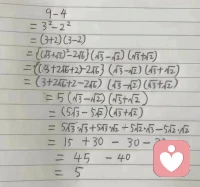 9-4
= 3²-2²
= (3+2)(3-2)
= {(√3+√2)²-2√6}(√3-√2)(√3+√2)
= {(3+2√6+2)-2√6}(√3-√2)(√3+√2)
= (3+2√6+2-2√6)(√3-√2)(√3+√2)
= 5(√3-√2)(√3+√2)
= (5√3-5√2)(√3+√2)
= 5√3·√3+5√3·√2-5√2·√3-5√2·√2
= 15+30-30-
= 45-40
= 5